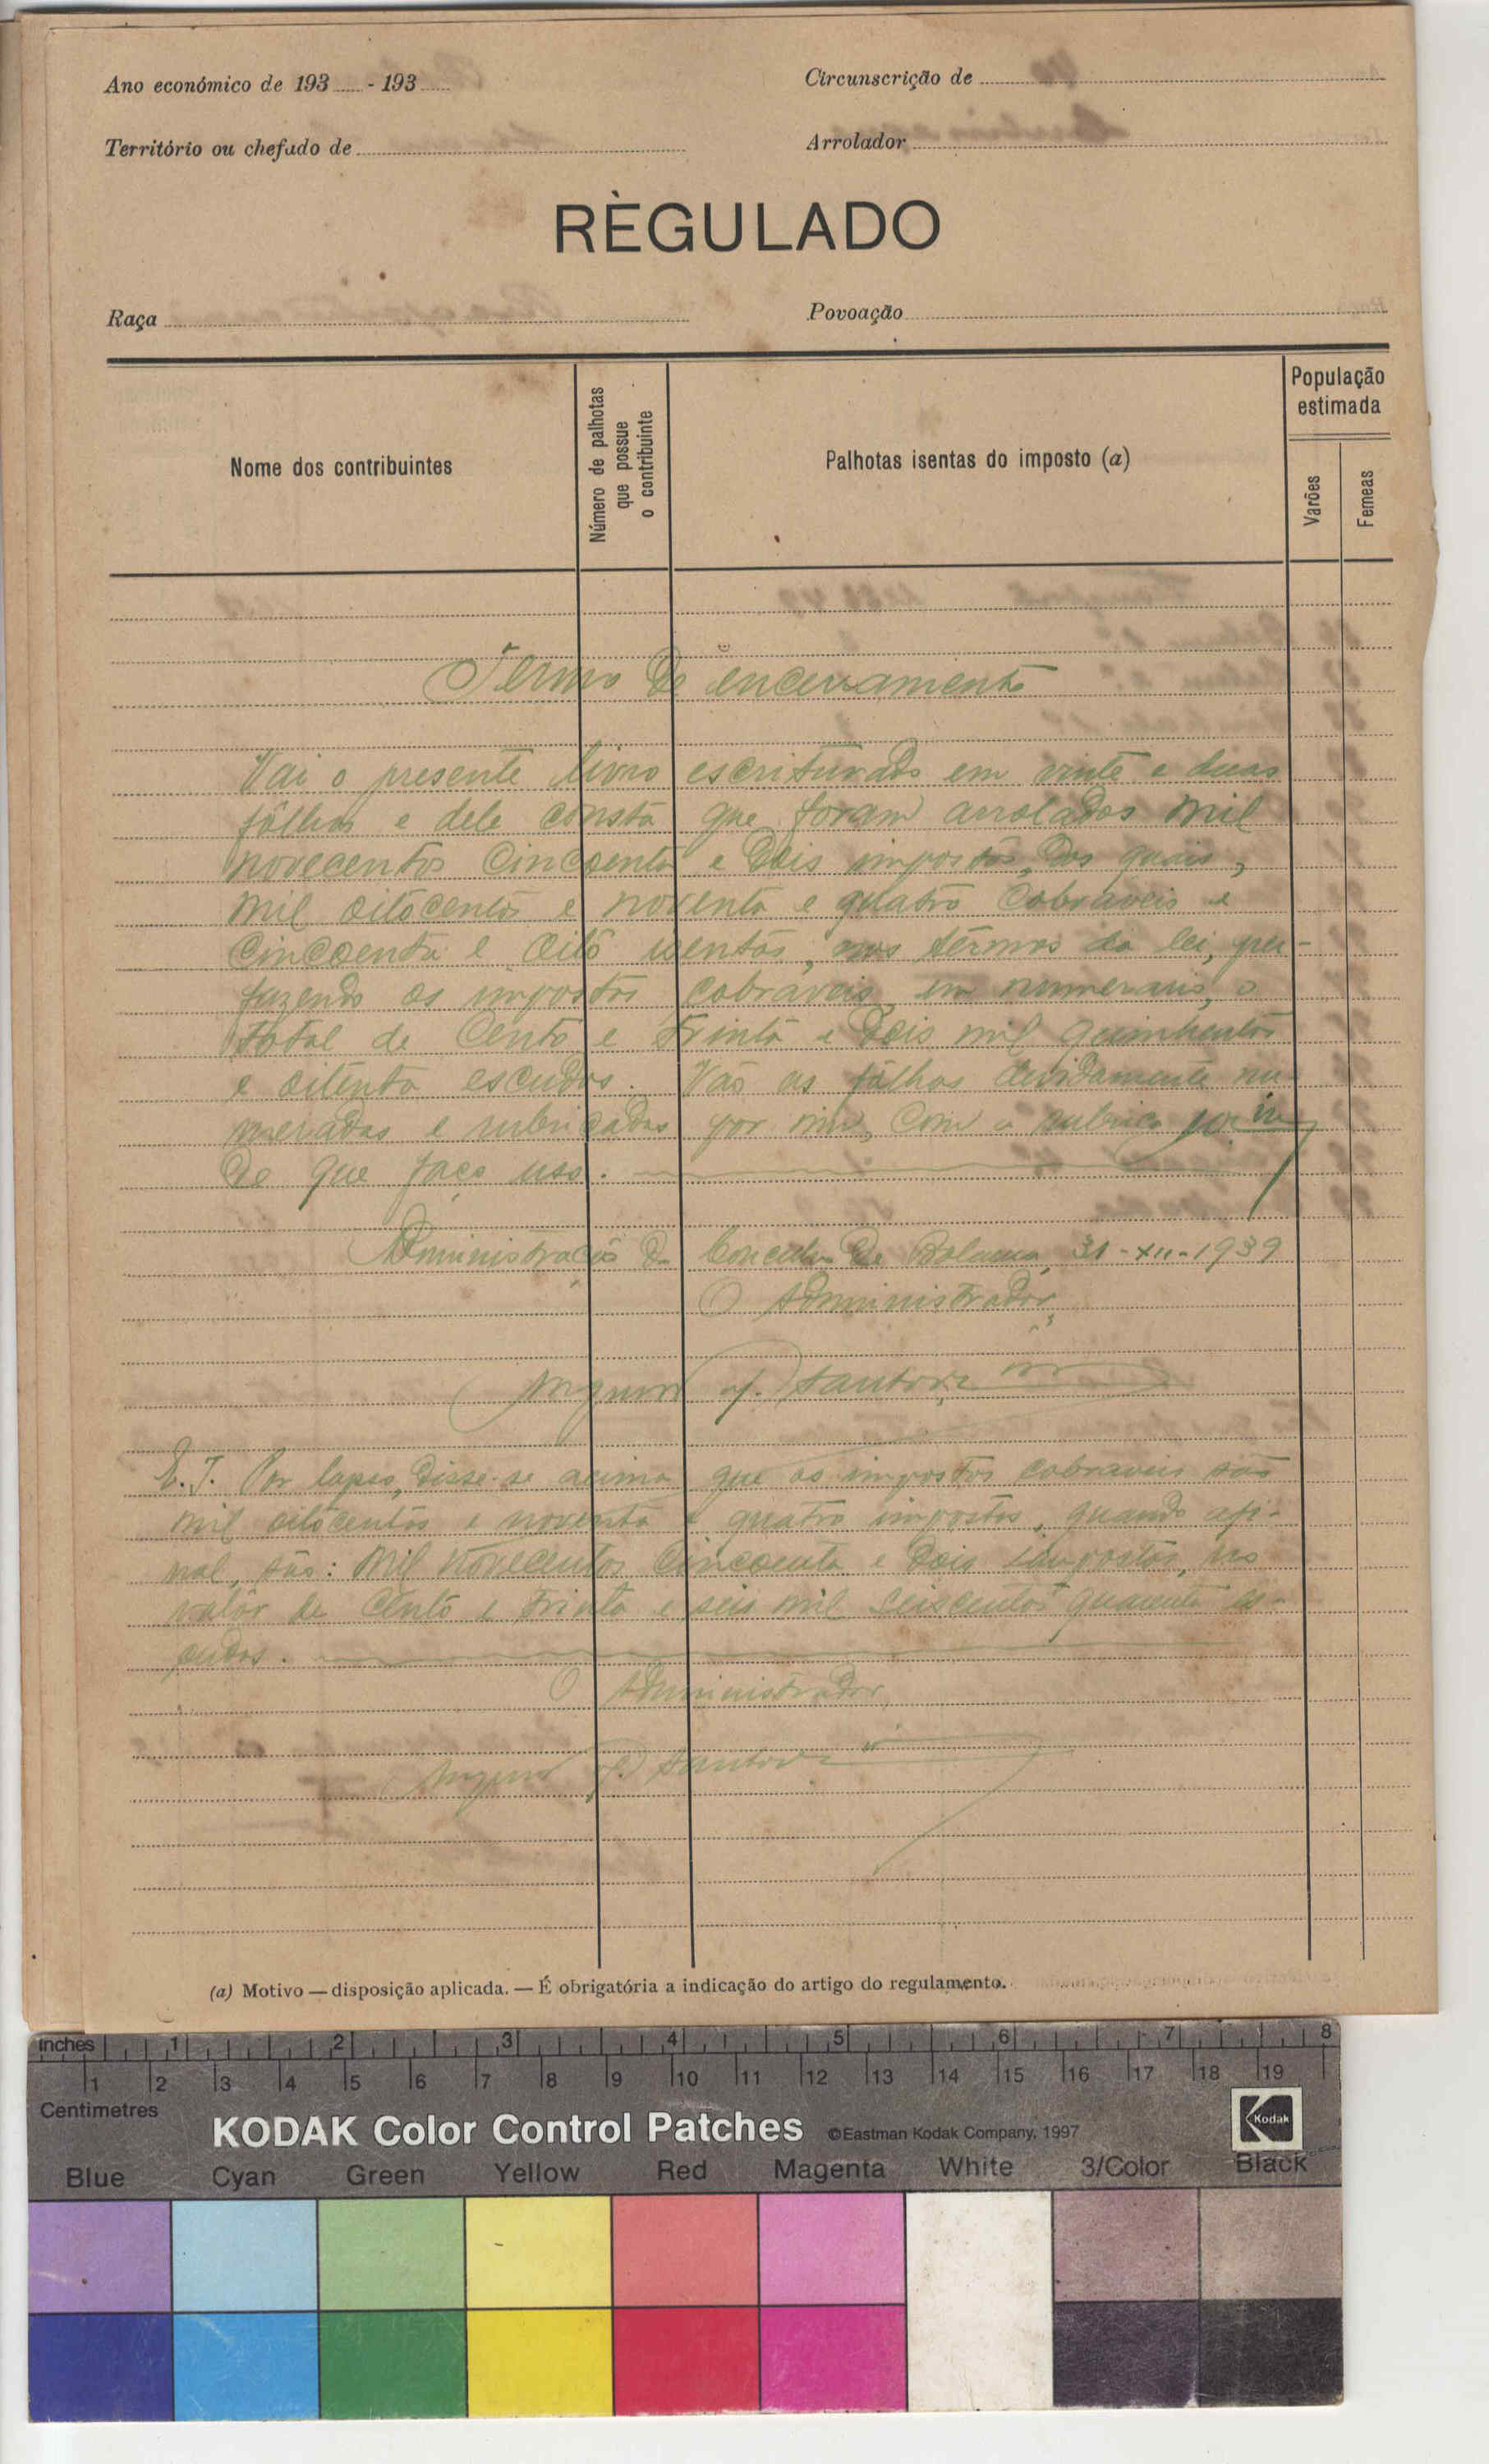 Ano económico de 193 - 193
Circunscrição de
Território ou chefado de
Arrolador
RÈGULADO
Raça
Povoação
Nome dos contribuintes
Número de palhotas
que possue
o contribuinte
Palhotas isentas do imposto (a)
População
estimada
Varões
Femeas
Termo de encerramento
Vai o presente livro escriturado em vinte e duas
fôlhas e dele consta que foram arrolados mil
novecentos cincoenta e dois impostos, dos quais,
mil oitocentos e noventa e quatro cobráveis e
cincoenta e oito isentos, nos têrmos da lei, per-
fazendo os impostos cobraveis, em numerario, o
total de cento e trinta e dois mil quinhentos
e oitenta escudos. Vão as fôlhas devidamente nu-
meradas e rubricadas por mim, com a rubrica
de que faço uso.
Administração do Concelho de Bolama, 31-XII-1939
O Administrador,
Santos
E.T. Por lapso, disse-se acima que os impostos cobraveis são
mil oitocentos e noventa e quatro impostos, quando afi-
nal, são: mil novecentos cincoenta e dois impostos, no
valôr de cento e trinta e seis mil seiscentos quarenta es-
cudos.
O Administrador,
(a) Motivo — disposição aplicada. — É obrigatória a indicação do artigo do regulamento.
inches 1 2 3 4 5 6 7 8
1 2 3 4 5 6 7 8 9 10 11 12 13 14 15 16 17 18 19
Centimetres
KODAK Color Control Patches ©Eastman Kodak Company, 1997
Kodak
Blue Cyan Green Yellow Red Magenta White 3/Color Black